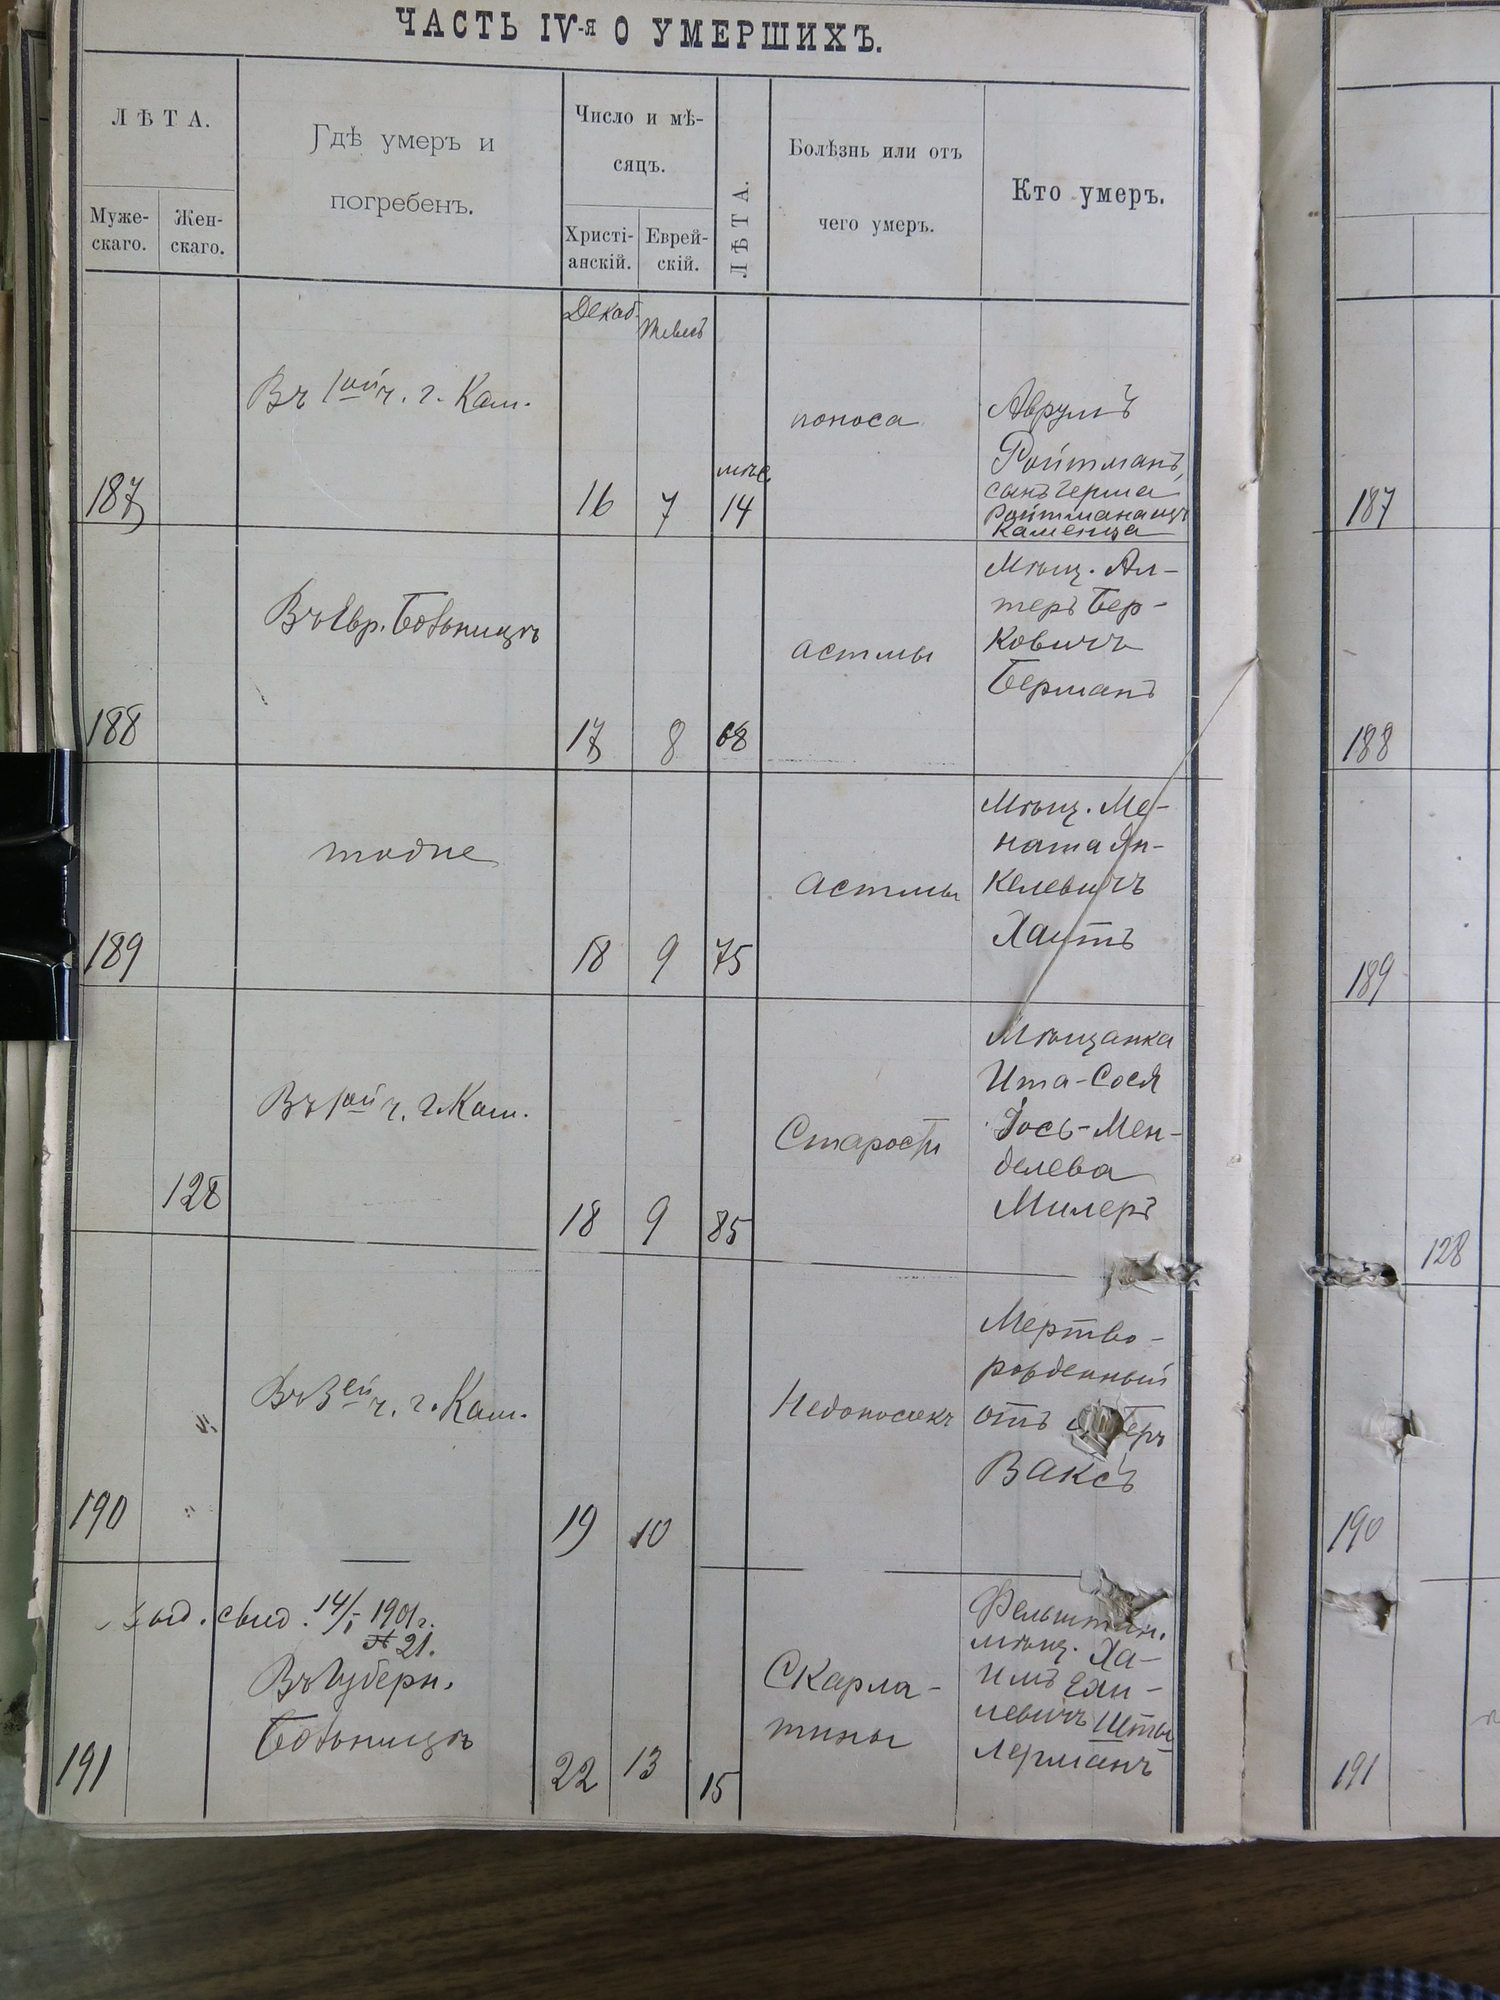 ЧАСТЬ IV-я О УМЕРШИХЪ.
ЛѢТА.
Муже-
скаго.
Жен-
скаго.
Гдѣ умеръ и
погребенъ.
Число и мѣ-
сяцъ.
Христі-
анскій.
Еврей-
скій.
ЛѢТА.
Болѣзнь или отъ
чего умеръ.
Кто умеръ.
Декаб.
Тевесъ
187
Въ 1ой ч. г. Кам.
16
7
мѣс.
14
поноса
Аврумъ
Ройтманъ,
сынъ Герша
Ройтмана изъ
Каменца
187
188
Въ Евр. Больницѣ
17
8
68
астмы
Мѣщ. Ал-
теръ Бер-
ковичъ
Берманъ
188
189
тодие
18
9
75
астмы
Мѣщ. Ме-
наша Ян-
келевичъ
Хаитъ
189
128
Въ 1ой ч. г. Кам.
18
9
85
Старости
Мѣщанка
Ита-Сося
Іось-Мен-
делева
Милеръ
128
190
Въ 3ей ч. г. Кам.
19
10
Недоносокъ
Мертво-
рожденный
отъ
Ваксъ
190
выд. свид. 14/I 1901 г.
№ 21.
191
Въ Губерн.
Больницѣ
22
13
15
Скарла-
тины
Фельштин.
мѣщ. Ха-
имъ
левичъ
лерманъ
191